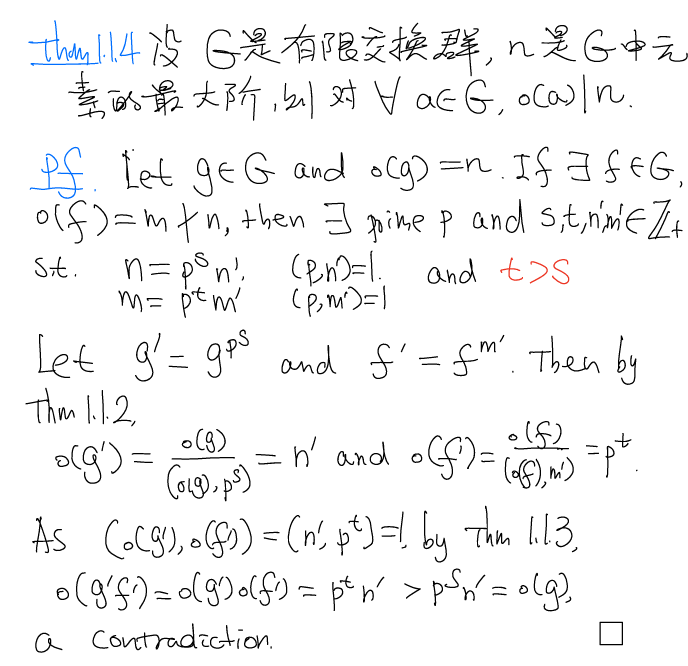 Thm 1.1.4 设 G是有限交换群, n是G中元
素的最大阶, 则 对 ∀ a∈G, o(a)|n.
pf. Let g∈G and o(g)=n. If ∃ f∈G,
o(f)=m∤n, then ∃ prime p and s,t,n',m'∈ℤ₊
s.t. n=pˢn', (p,n')=1. and t>s
m=pᵗm' (p,m')=1
Let g'=g^{pˢ} and f'=f^{m'}. Then by
Thm 1.1.2,
o(g')=o(g)/(o(g),pˢ)=n' and o(f')=o(f)/(o(f),m')=pᵗ.
As (o(g'),o(f'))=(n',pᵗ)=1, by Thm 1.1.3,
o(g'f')=o(g')o(f')=pᵗn'>pˢn'=o(g),
a contradiction. □